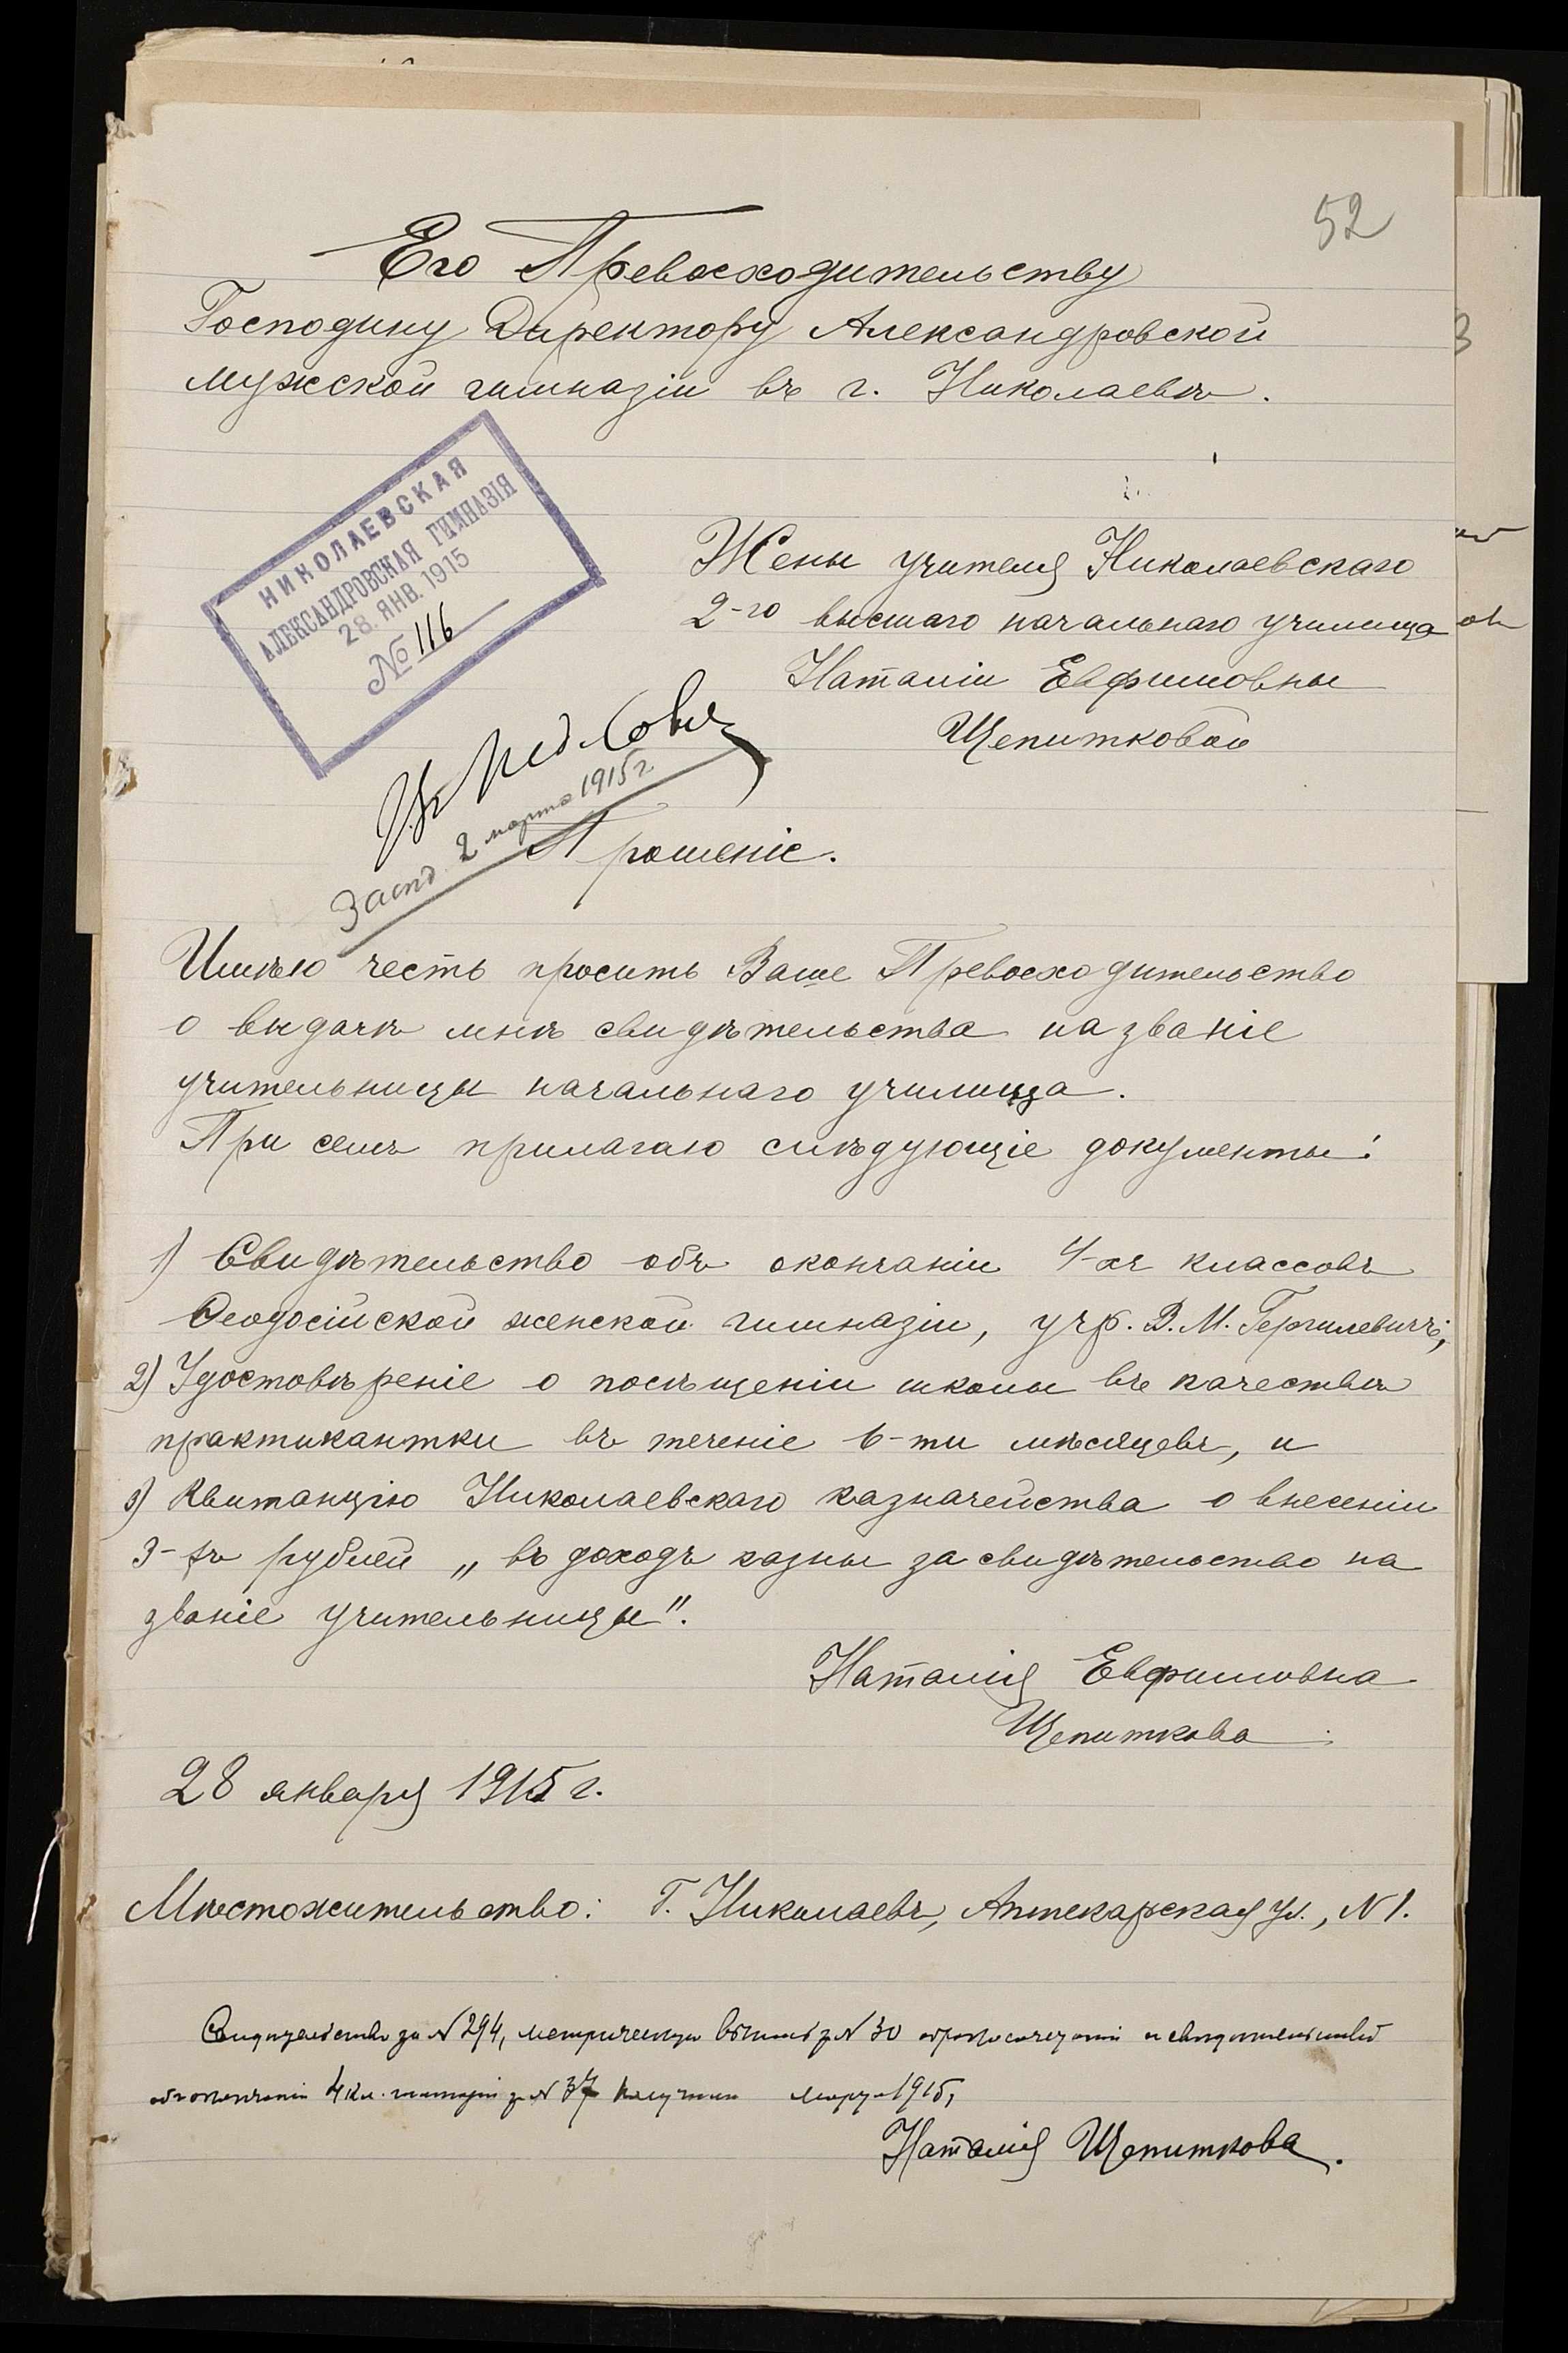 52
Его Превосходительству
Господину Директору Александровской
мужской гимназіи въ г. Николаевѣ.
НИКОЛАЕВСКАЯ
АЛЕКСАНДРОВСКАЯ ГИМНАЗІЯ
28. ЯНВ. 1915
№ 116
Жены учителя Николаевскаго
2-го высшаго начальнаго училища
Наталіи Евфимовны
Щепитковой
Въ Пед. Совѣ
Засѣд. 2 марта 1915 г.
Прошеніе.
Имѣю честь просить Ваше Превосходительство
о выдачѣ мнѣ свидѣтельства на званіе
учительницы начальнаго училища.
При семъ прилагаю слѣдующіе документы:
1) Свидѣтельство объ окончаніи 4-хъ классовъ
Ѳеодосійской женской гимназіи, учр. В. М. Гергилевичъ;
2) Удостовѣреніе о посѣщеніи школы въ качествѣ
практикантки въ теченіе 6-ти мѣсяцевъ, и
3) Квитанцію Николаевскаго казначейства о внесеніи
3-хъ рублей „въ доходъ казны за свидѣтельство на
званіе учительницы".
Наталія Евфимовна
Щепиткова
28 января 1915 г.
Мѣстожительство: Г. Николаевъ, Аптекарская ул., N 1.
Свидѣтельство за N 294, метрическую выпись за N 30 о бракосочетаніи и свидѣтельство
объ окончаніи 4 кл. гимназіи за N 37 получила марта 1915,
Наталія Щепиткова.